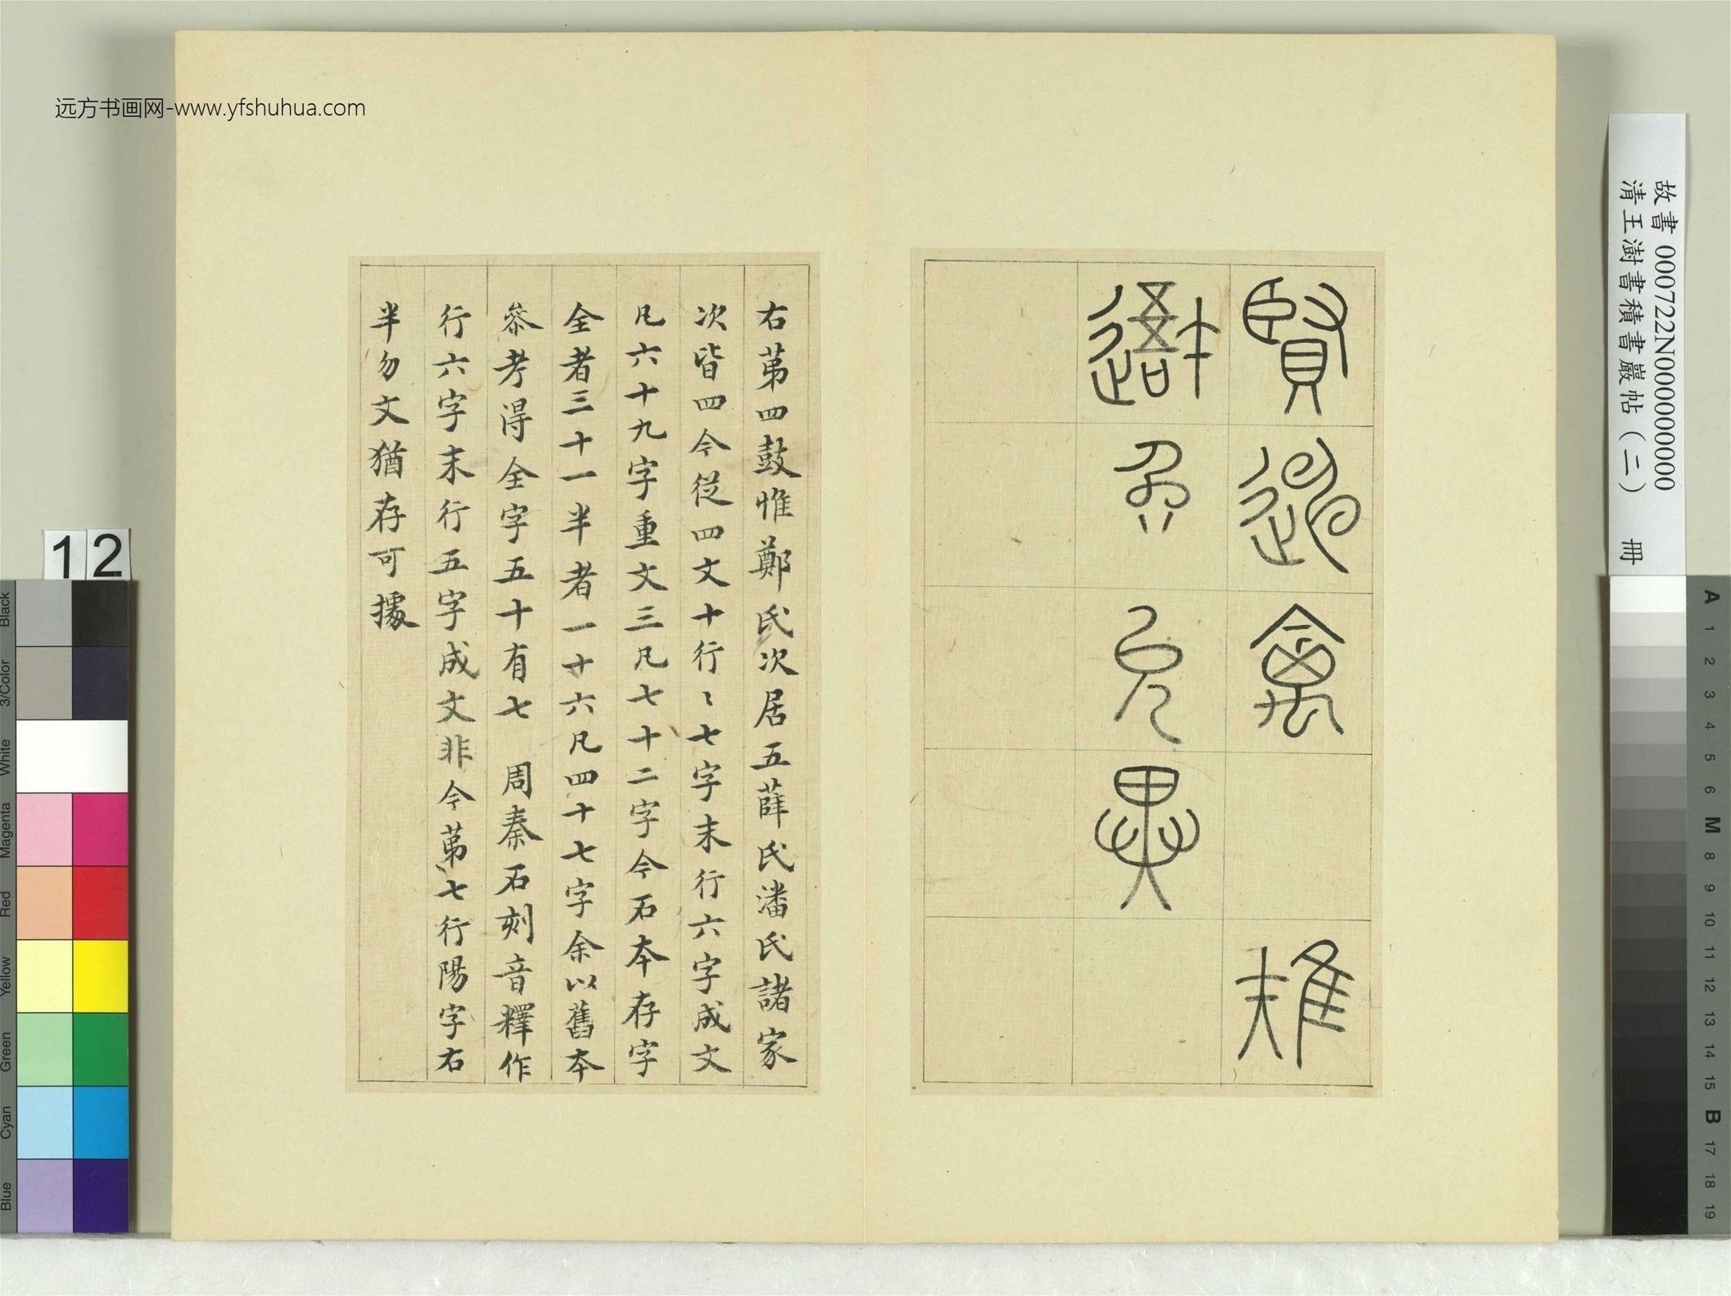 远方书画网-www.yfshuhua.com
故書 000722N000000000
清王澍書積書巖帖（二） 冊
賢
禽
雉
允
異
右苐四鼓惟鄭氏次居五薛氏潘氏諸家
次皆四今從四文十行〻七字末行六字成文
凡六十九字重文三凡七十二字今石本存字
全者三十一半者一十六凡四十七字余以舊本
叅考得全字五十有七 周秦石刻音釋作
行六字末行五字成文非今苐七行陽字右
半勿文猶存可據
12
Black
3/Color
White
Magenta
Red
Yellow
Green
Cyan
Blue
A
1
2
3
4
5
6
M
8
9
10
11
12
13
14
15
B
17
18
19